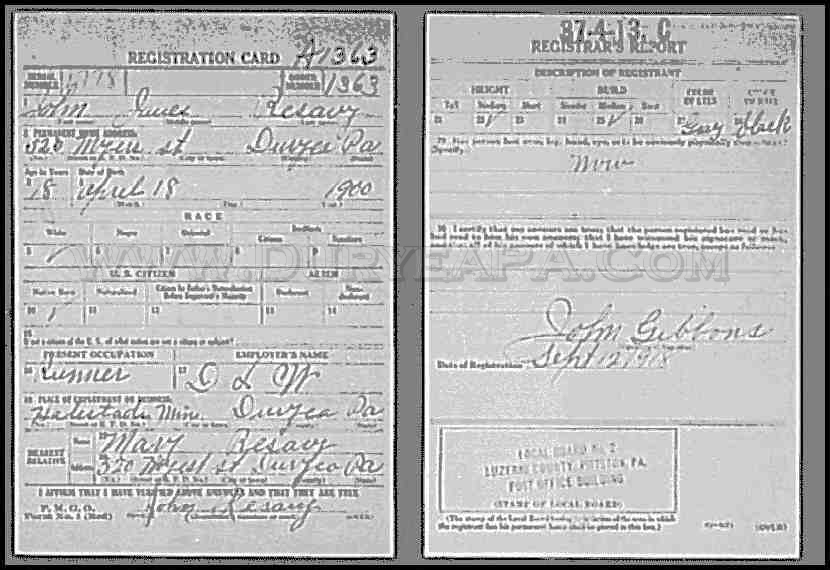 REGISTRATION CARD A1363
SERIAL NUMBER 1778 ORDER NUMBER 1363
1 John James Resavy
(First name) (Middle name) (Last name)
2 PERMANENT HOME ADDRESS:
320 Main st Duryea Pa
(No.) (Street or R. F. D. No.) (City or town) (County) (State)
Age in Years Date of Birth
3 18 4 April 18 1900
(Month.) (Day.) (Year.)
RACE
White Negro Oriental Indian
Citizen Noncitizen
5 ✓ 6 7 8 9
U. S. CITIZEN ALIEN
Native Born Naturalized Citizen by Father's Naturalization Before Registrant's Majority Declarant Non-declarant
10 ✓ 11 12 13 14
15
If not a citizen of the U. S., of what nation are you a citizen or subject?
PRESENT OCCUPATION EMPLOYER'S NAME
16 Runner 17 D L W
18 PLACE OF EMPLOYMENT OR BUSINESS:
Duryea Pa
(No.) (Street or R. F. D. No.) (City or town) (County) (State)
NEAREST RELATIVE
Name 19 Mary Resavy
Address 20 320 Main st Duryea Pa
(No.) (Street or R. F. D. No.) (City or town) (County) (State)
I AFFIRM THAT I HAVE VERIFIED ABOVE ANSWERS AND THAT THEY ARE TRUE
P. M. G. O.
Form No. 1 (Red) John Resavy
(Registrant's signature or mark) (OVER)
37-4-13. C
REGISTRAR'S REPORT
DESCRIPTION OF REGISTRANT
HEIGHT BUILD COLOR OF EYES COLOR OF HAIR
Tall Medium Short Slender Medium Stout
21 22 ✓ 23 24 25 ✓ 26 27 Gray 28 black
29 Has person lost arm, leg, hand, eye, or is he obviously physically disqualified?
(Specify.)
None
30 I certify that my answers are true; that the person registered has read or has
had read to him his own answers; that I have witnessed his signature or mark,
and that all of his answers of which I have knowledge are true, except as follows:
John Gibbons
Date of Registration Sept 12 1918
LOCAL BOARD NO. 2
LUZERNE COUNTY, PITTSTON, PA.
POST OFFICE BUILDING
(STAMP OF LOCAL BOARD)
(The stamp of the Local Board having jurisdiction of the area in which
the registrant has his permanent home shall be placed in this box.)
(OVER)
WWW.DURYEAPA.COM